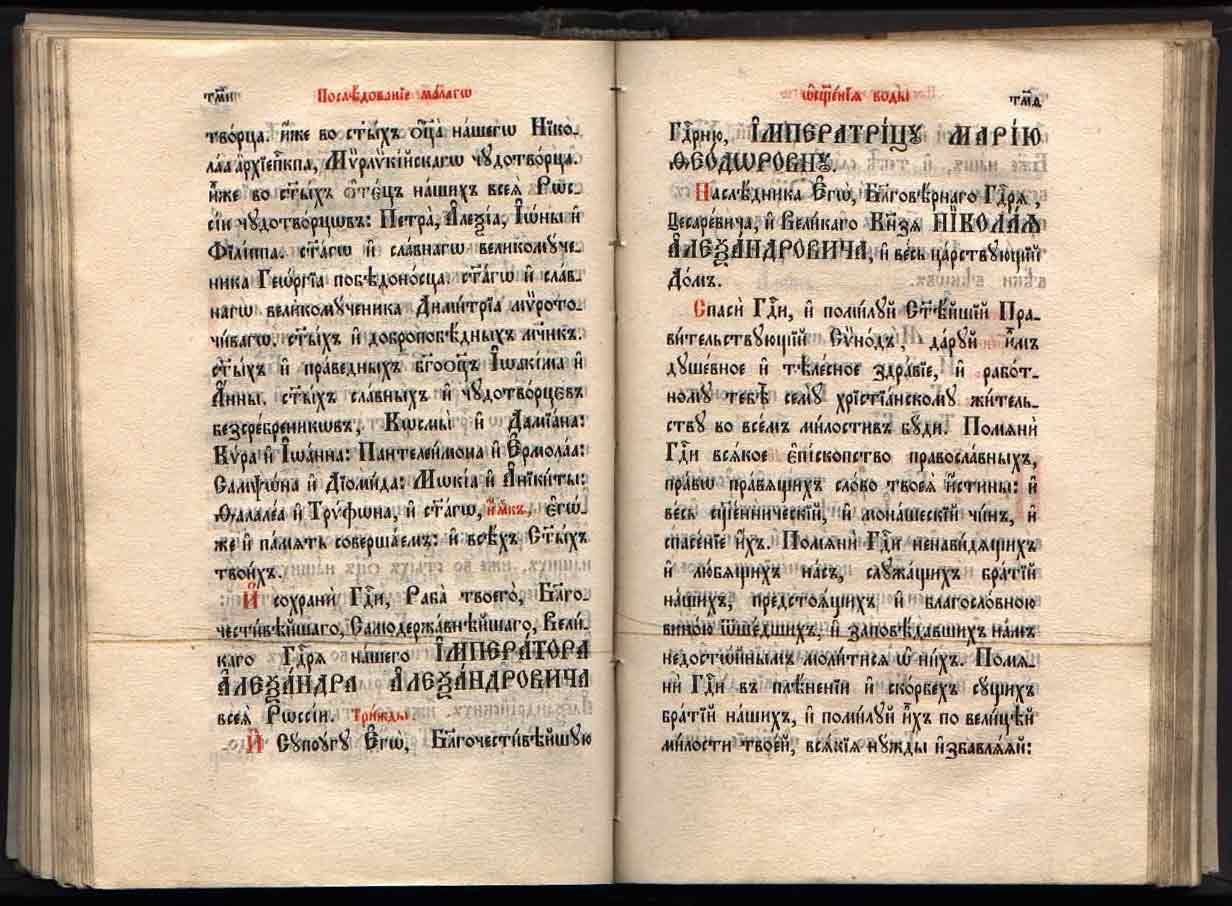 тм҃и
Послѣ́дованїе ма́лагѡ
тво́рца. и҆́же во ст҃ы́хъ ѻ҆ц҃а̀ на́шегѡ Нїко-
ла́а а҆рхїеп҇кпа, Мѷрлѷкі́йскагѡ чꙋдотво́рца.
и҆́же во ст҃ы́хъ ѻ҆те́цъ на́шихъ всеѧ̀ Рѡс-
сі́и чꙋдотво́рцѡвъ: Петра̀, А҆леѯі́а, І҆ѡ́ны и҆
Фїлі́ппа. ст҃а́гѡ и҆ сла́внагѡ великомꙋ́че-
ника Геѡ́ргїа побѣдоно́сца. ст҃а́гѡ и҆ сла́в-
нагѡ великомꙋ́ченика Дими́трїа мѷрото-
чи́вагѡ. ст҃ы́хъ и҆ добропобѣ́дныхъ мч҃нкъ.
ст҃ы́хъ и҆ пра́ведныхъ бг҃оѻц҃ъ І҆ѡакі́ма и҆
А҆́нны. ст҃ы́хъ сла́вныхъ и҆ чꙋдотво́рцєвъ
безсре́бреникѡвъ, Космы̀ и҆ Дамїа́на:
Кѵ́ра и҆ І҆ѡа́нна: Пантелеи́мона и҆ Е҆рмола́а:
Самѱѡ́на и҆ Дїоми́да: Мѡкі́а и҆ А҆нїки́ты:
Ѳалале́а и҆ Трѵ́фѡна, и҆ ст҃а́гѡ, и҆́м҃къ, є҆гѡ́-
же и҆ па́мять соверша́емъ: и҆ всѣ́хъ Ст҃ы́хъ
твои́хъ.
И҆ сохранѝ Гдⷭ҇и, Раба̀ твоего̀, Бл҃го-
чести́вѣйшаго, Самодержа́внѣйшаго, Вели́-
каго Гдⷭ҇рѧ на́шего І҆МПЕРА́ТОРА
А҆ЛЕѮА́НДРА А҆ЛЕѮА́НДРОВИЧА
всеѧ̀ Рѡссі́и. Три́жды.
И҆ Сꙋпрꙋ́гꙋ Є҆гѡ̀, Бл҃гочести́вѣйшꙋю
ѡ҆сщ҃е́нїѧ воды̀
тм҃ѳ
Гдⷭ҇рню, І҆МПЕРАТРІ́ЦꙊ МАРІ́Ю
ѲЕО́ДѠРОВНꙊ.
Наслѣ́дника Є҆гѡ̀, Бл҃говѣ́рнаго Гдⷭ҇рѧ,
Цесаре́вича, и҆ Вели́каго Кн҃зѧ НІКОЛА́Ѧ
А҆ЛЕѮА́НДРОВИЧА, и҆ ве́сь ца́рствꙋющїй
До́мъ.
Спасѝ Гдⷭ҇и, и҆ поми́лꙋй Ст҃ѣ́йшїй Пра-
ви́тельствꙋющїй Сѷно́дъ, да́рꙋй и҆̀мъ
дꙋше́вное и҆ тѣле́сное здра́вїе, и҆ рабо́т-
номꙋ тебѣ̀ семꙋ̀ хрⷭ҇тїа́нскомꙋ жи́тель-
ствꙋ во все́мъ ми́лостивъ бꙋ́ди. Помѧнѝ
Гдⷭ҇и всѧ́кое є҆пі́скопство правосла́вныхъ,
пра́вѡ пра́вѧщихъ сло́во твоеѧ̀ и҆́стины: и҆
ве́сь сщ҃е́нническїй, и҆ мона́шескїй чи́нъ, и҆
спасе́нїе и҆́хъ. Помѧнѝ Гдⷭ҇и ненави́дѧщихъ
и҆ лю́бѧщихъ на́съ, слꙋ́жащихъ бра́тїй
на́шихъ, предстоѧ́щихъ и҆ благосло́вною
вино́ю ѿше́дшихъ, и҆ заповѣ́давшихъ на́мъ
недостѡ́йнымъ моли́тисѧ ѡ҆ ни́хъ. Помѧ-
нѝ Гдⷭ҇и въ плѣне́нїи и҆ ско́рбехъ сꙋ́щихъ
бра́тїй на́шихъ, и҆ поми́лꙋй и҆̀хъ по вели́цѣй
ми́лости твое́й, всѧ́кїѧ нꙋ́жды и҆збавлѧ́ѧй: